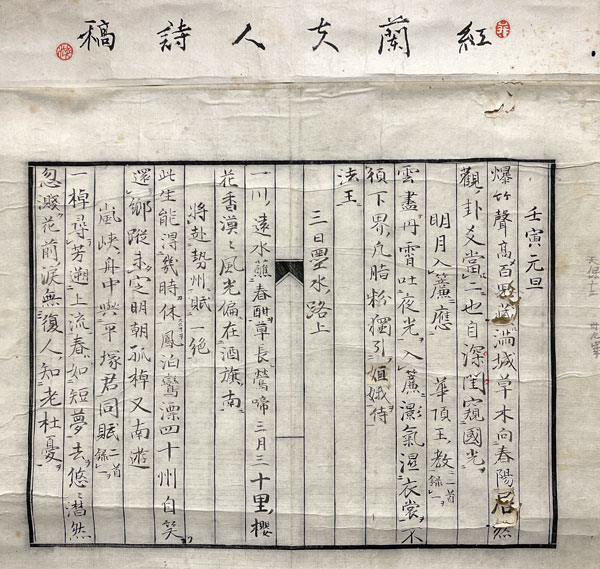 紅蘭女人詩稿
壬寅元旦
爆竹聲高百 滿城草木向春陽 居然
觀卦爻當二也自深閨窺國光
明月入簾應 華頂王教 二首錄一
雲盡丹霄吐夜光入簾灝氣濕衣裳不
須下界凡脂粉獨引姮娥侍
法王
三日墨水路上
一川遠水蘸春酣草長鶯啼三月三十里櫻
花香漠〻風光偏在酒旗南
將赴勢州賦一絕
此生能得幾時休鳳泊鸞漂四十州自笑
還鄉蹤未定明朝孤棹又南遊
嵐峽舟中與平塚君同賦 二首錄一
一棹尋芳溯上流春如短夢去悠〻潸然
忽濺花前淚無復人知老杜憂